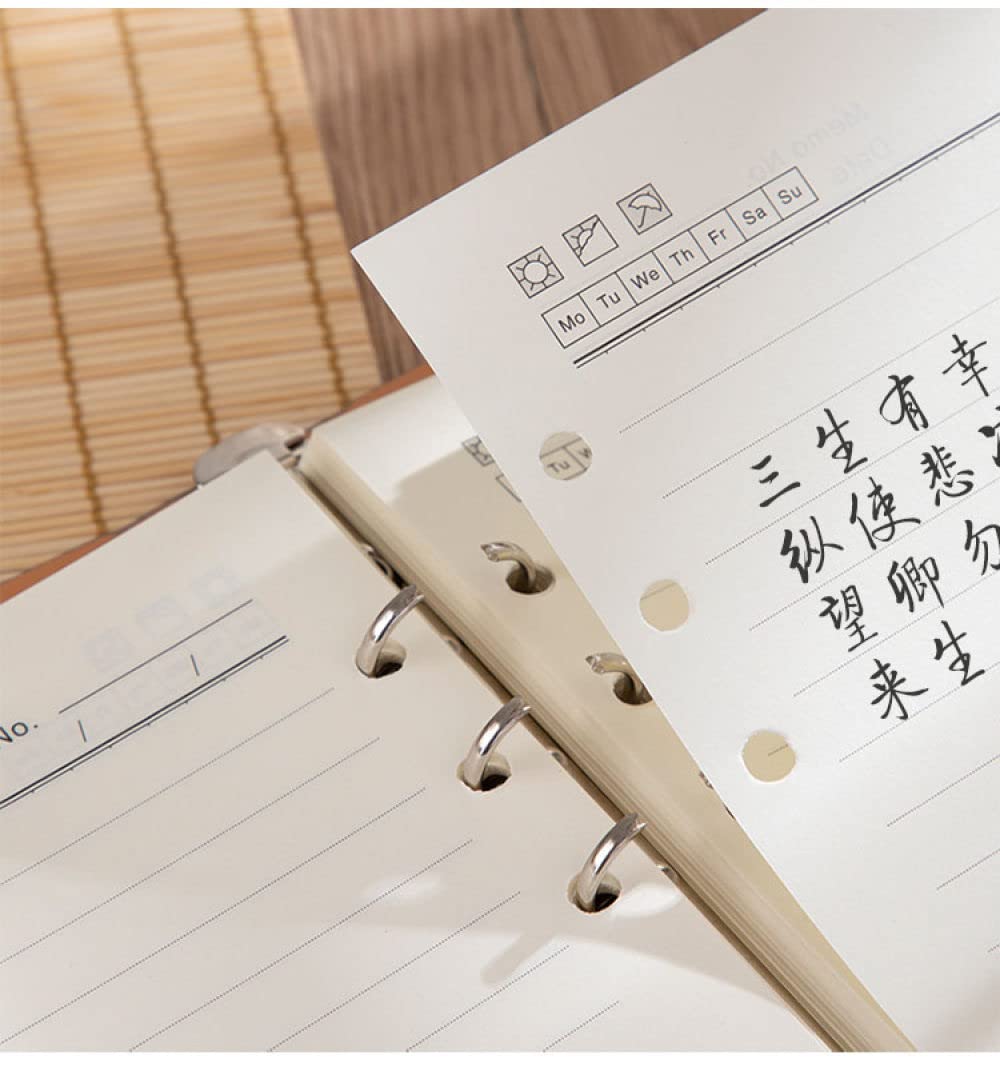 Mo Tu We Th Fr Sa Su
三生有幸
纵使悲
望卿勿
来生
Tu
No.
/ /
Memo No.
Date